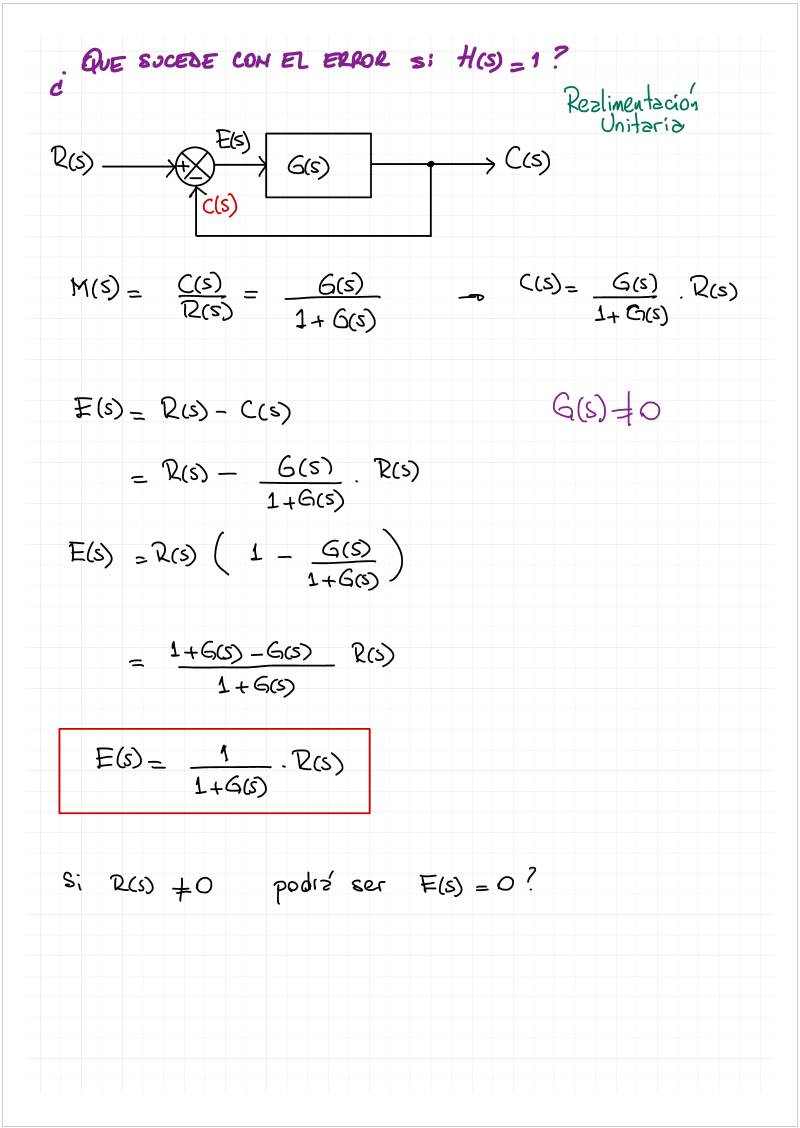 ¿ QUE SUCEDE CON EL ERROR Si H(s) = 1 ?
Realimentación
Unitaria
R(s) + − E(s) G(s) C(s)
C(s)
M(s) = C(s)/R(s) = G(s)/(1 + G(s)) → C(s) = G(s)/(1 + G(s)) . R(s)
E(s) = R(s) − C(s) G(s) ≠ 0
= R(s) − G(s)/(1+G(s)) . R(s)
E(s) = R(s) ( 1 − G(s)/(1+G(s)) )
= (1+G(s) − G(s))/(1+G(s)) R(s)
E(s) = 1/(1+G(s)) . R(s)
Si R(s) ≠ 0 podrá ser E(s) = 0 ?